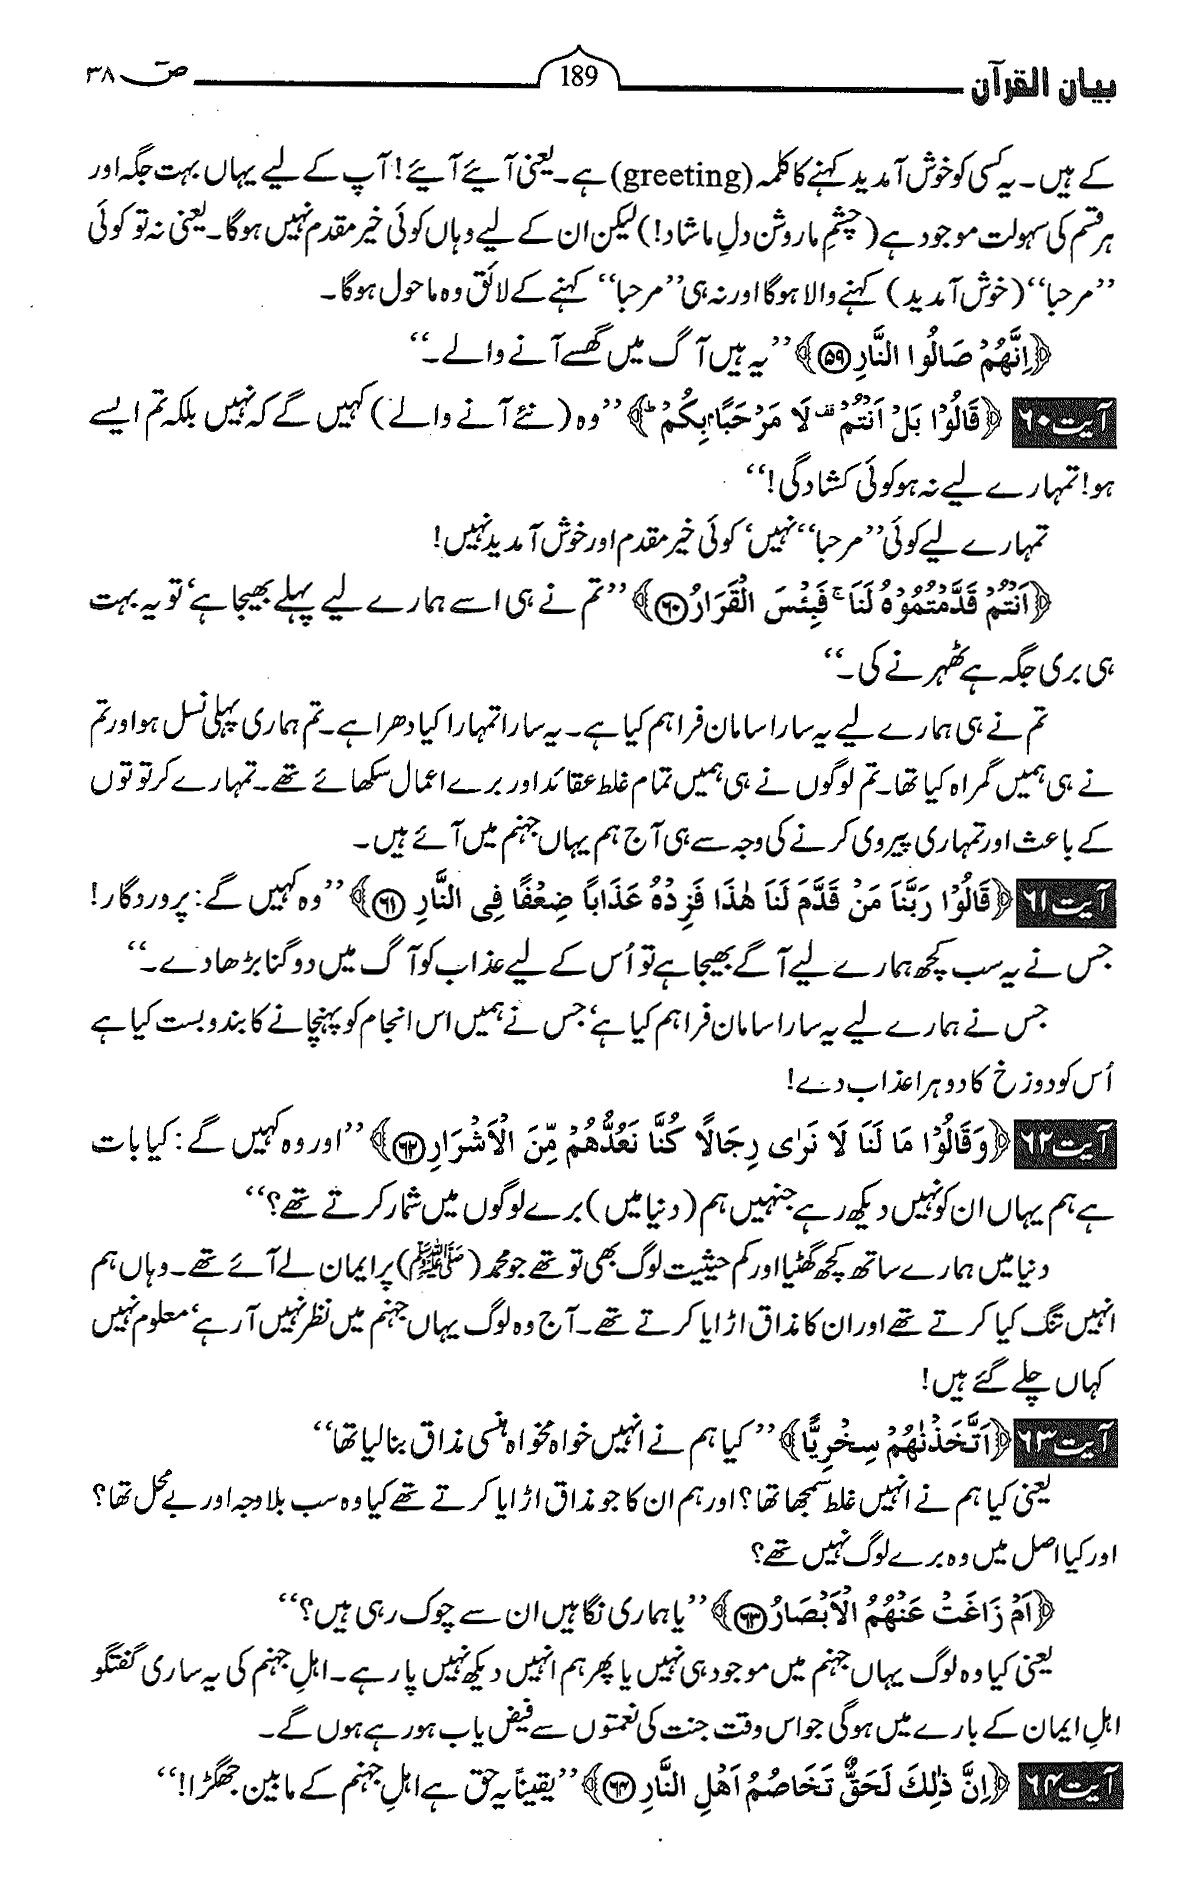 بیان القرآن 189 صٓ ۳۸
کے ہیں۔ یہ کسی کو خوش آمدید کہنے کا کلمہ (greeting) ہے۔ یعنی آیئے آیئے! آپ کے لیے یہاں بہت جگہ اور
ہر قسم کی سہولت موجود ہے (چشمِ ما روشن دلِ ما شاد!) لیکن ان کے لیے وہاں کوئی خیر مقدم نہیں ہوگا۔ یعنی نہ تو کوئی
’’مرحبا‘‘ (خوش آمدید) کہنے والا ہوگا اور نہ ہی ’’مرحبا‘‘ کہنے کے لائق وہ ماحول ہوگا۔
﴿اِنَّهُمْ صَالُوا النَّارِ ﴿۵۹﴾﴾ ’’یہ ہیں آگ میں گھسے آنے والے۔‘‘
آیت ۶۰ ﴿قَالُوْا بَلْ اَنْتُمْ ۫ لَا مَرْحَبًۢا بِكُمْ ؕ﴾ ’’وہ (نئے آنے والے) کہیں گے کہ نہیں بلکہ تم ایسے
ہو! تمہارے لیے نہ ہو کوئی کشادگی!‘‘
تمہارے لیے کوئی ’’مرحبا‘‘ نہیں‘ کوئی خیر مقدم اور خوش آمدید نہیں!
﴿اَنْتُمْ قَدَّمْتُمُوْهُ لَنَا ۚ فَبِئْسَ الْقَرَارُ ﴿۶۰﴾﴾ ’’تم نے ہی اسے ہمارے لیے پہلے بھیجا ہے‘ تو یہ بہت
ہی بری جگہ ہے ٹھہرنے کی۔‘‘
تم نے ہی ہمارے لیے یہ سارا سامان فراہم کیا ہے۔ یہ سارا تمہارا کیا دھرا ہے۔ تم ہماری پہلی نسل ہو اور تم
نے ہی ہمیں گمراہ کیا تھا۔ تم لوگوں نے ہی ہمیں تمام غلط عقائد اور برے اعمال سکھائے تھے۔ تمہارے کرتوتوں
کے باعث اور تمہاری پیروی کرنے کی وجہ سے ہی آج ہم یہاں جہنم میں آئے ہیں۔
آیت ۶۱ ﴿قَالُوْا رَبَّنَا مَنْ قَدَّمَ لَنَا هٰذَا فَزِدْهُ عَذَابًا ضِعْفًا فِی النَّارِ ﴿۶۱﴾﴾ ’’وہ کہیں گے: پروردگار!
جس نے یہ سب کچھ ہمارے لیے آگے بھیجا ہے تو اُس کے لیے عذاب کو آگ میں دوگنا بڑھا دے۔‘‘
جس نے ہمارے لیے یہ سارا سامان فراہم کیا ہے‘ جس نے ہمیں اس انجام کو پہنچانے کا بندوبست کیا ہے
اُس کو دوزخ کا دوہرا عذاب دے!
آیت ۶۲ ﴿وَقَالُوْا مَا لَنَا لَا نَرٰى رِجَالًا كُنَّا نَعُدُّهُمْ مِّنَ الْاَشْرَارِ ﴿۶۲﴾﴾ ’’اور وہ کہیں گے: کیا بات
ہے ہم یہاں ان کو نہیں دیکھ رہے جنہیں ہم (دنیا میں) برے لوگوں میں شمار کرتے تھے؟‘‘
دنیا میں ہمارے ساتھ کچھ گھٹیا اور کم حیثیت لوگ بھی تو تھے جو محمد (ﷺ) پر ایمان لے آئے تھے۔ وہاں ہم
انہیں تنگ کیا کرتے تھے اور ان کا مذاق اڑایا کرتے تھے۔ آج وہ لوگ یہاں جہنم میں نظر نہیں آ رہے‘ معلوم نہیں
کہاں چلے گئے ہیں!
آیت ۶۳ ﴿اَتَّخَذْنٰهُمْ سِخْرِیًّا﴾ ’’کیا ہم نے انہیں خواہ مخواہ ہنسی مذاق بنا لیا تھا‘‘
یعنی کیا ہم نے انہیں غلط سمجھا تھا؟ اور ہم ان کا جو مذاق اڑایا کرتے تھے کیا وہ سب بلاوجہ اور بے محل تھا؟
اور کیا اصل میں وہ برے لوگ نہیں تھے؟
﴿اَمْ زَاغَتْ عَنْهُمُ الْاَبْصَارُ ﴿۶۳﴾﴾ ’’یا ہماری نگاہیں ان سے چوک رہی ہیں؟‘‘
یعنی کیا وہ لوگ یہاں جہنم میں موجود ہی نہیں یا پھر ہم انہیں دیکھ نہیں پا رہے۔ اہلِ جہنم کی یہ ساری گفتگو
اہلِ ایمان کے بارے میں ہوگی جو اس وقت جنت کی نعمتوں سے فیض یاب ہو رہے ہوں گے۔
آیت ۶۴ ﴿اِنَّ ذٰلِكَ لَحَقٌّ تَخَاصُمُ اَهْلِ النَّارِ ﴿۶۴﴾﴾ ’’یقیناً یہ حق ہے اہلِ جہنم کے مابین جھگڑا!‘‘